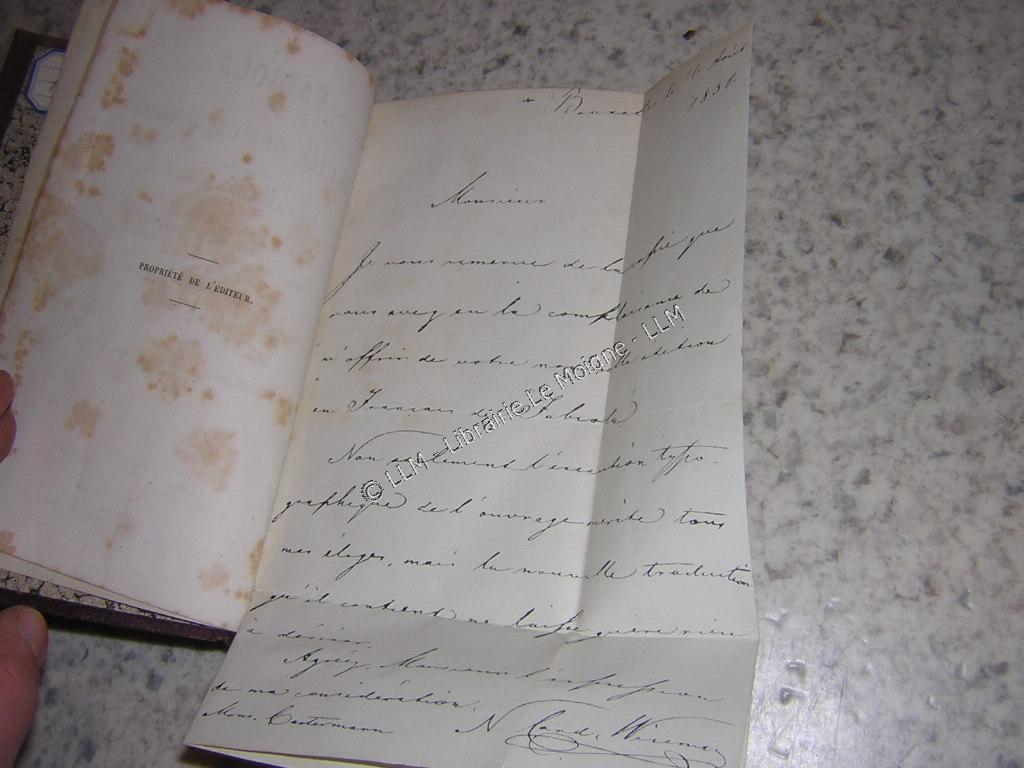 PROPRIÉTÉ DE L'ÉDITEUR.
le 16 Août
Monsieur
Je vous remercie de la copie que
vous avez eu la complaisance de
m'offrir de votre nouvelle édition
en Français de Fabiola
Non seulement l'exécution typo-
graphique de l'ouvrage mérite tous
mes éloges, mais la nouvelle traduction
qu'il contient ne laisse guère rien
à désirer.
Agréez, Monsieur l'expression
de ma considération.
N Card. Wiseman
Mons. Castermann
© LLM - Librairie Le Moigne - LLM